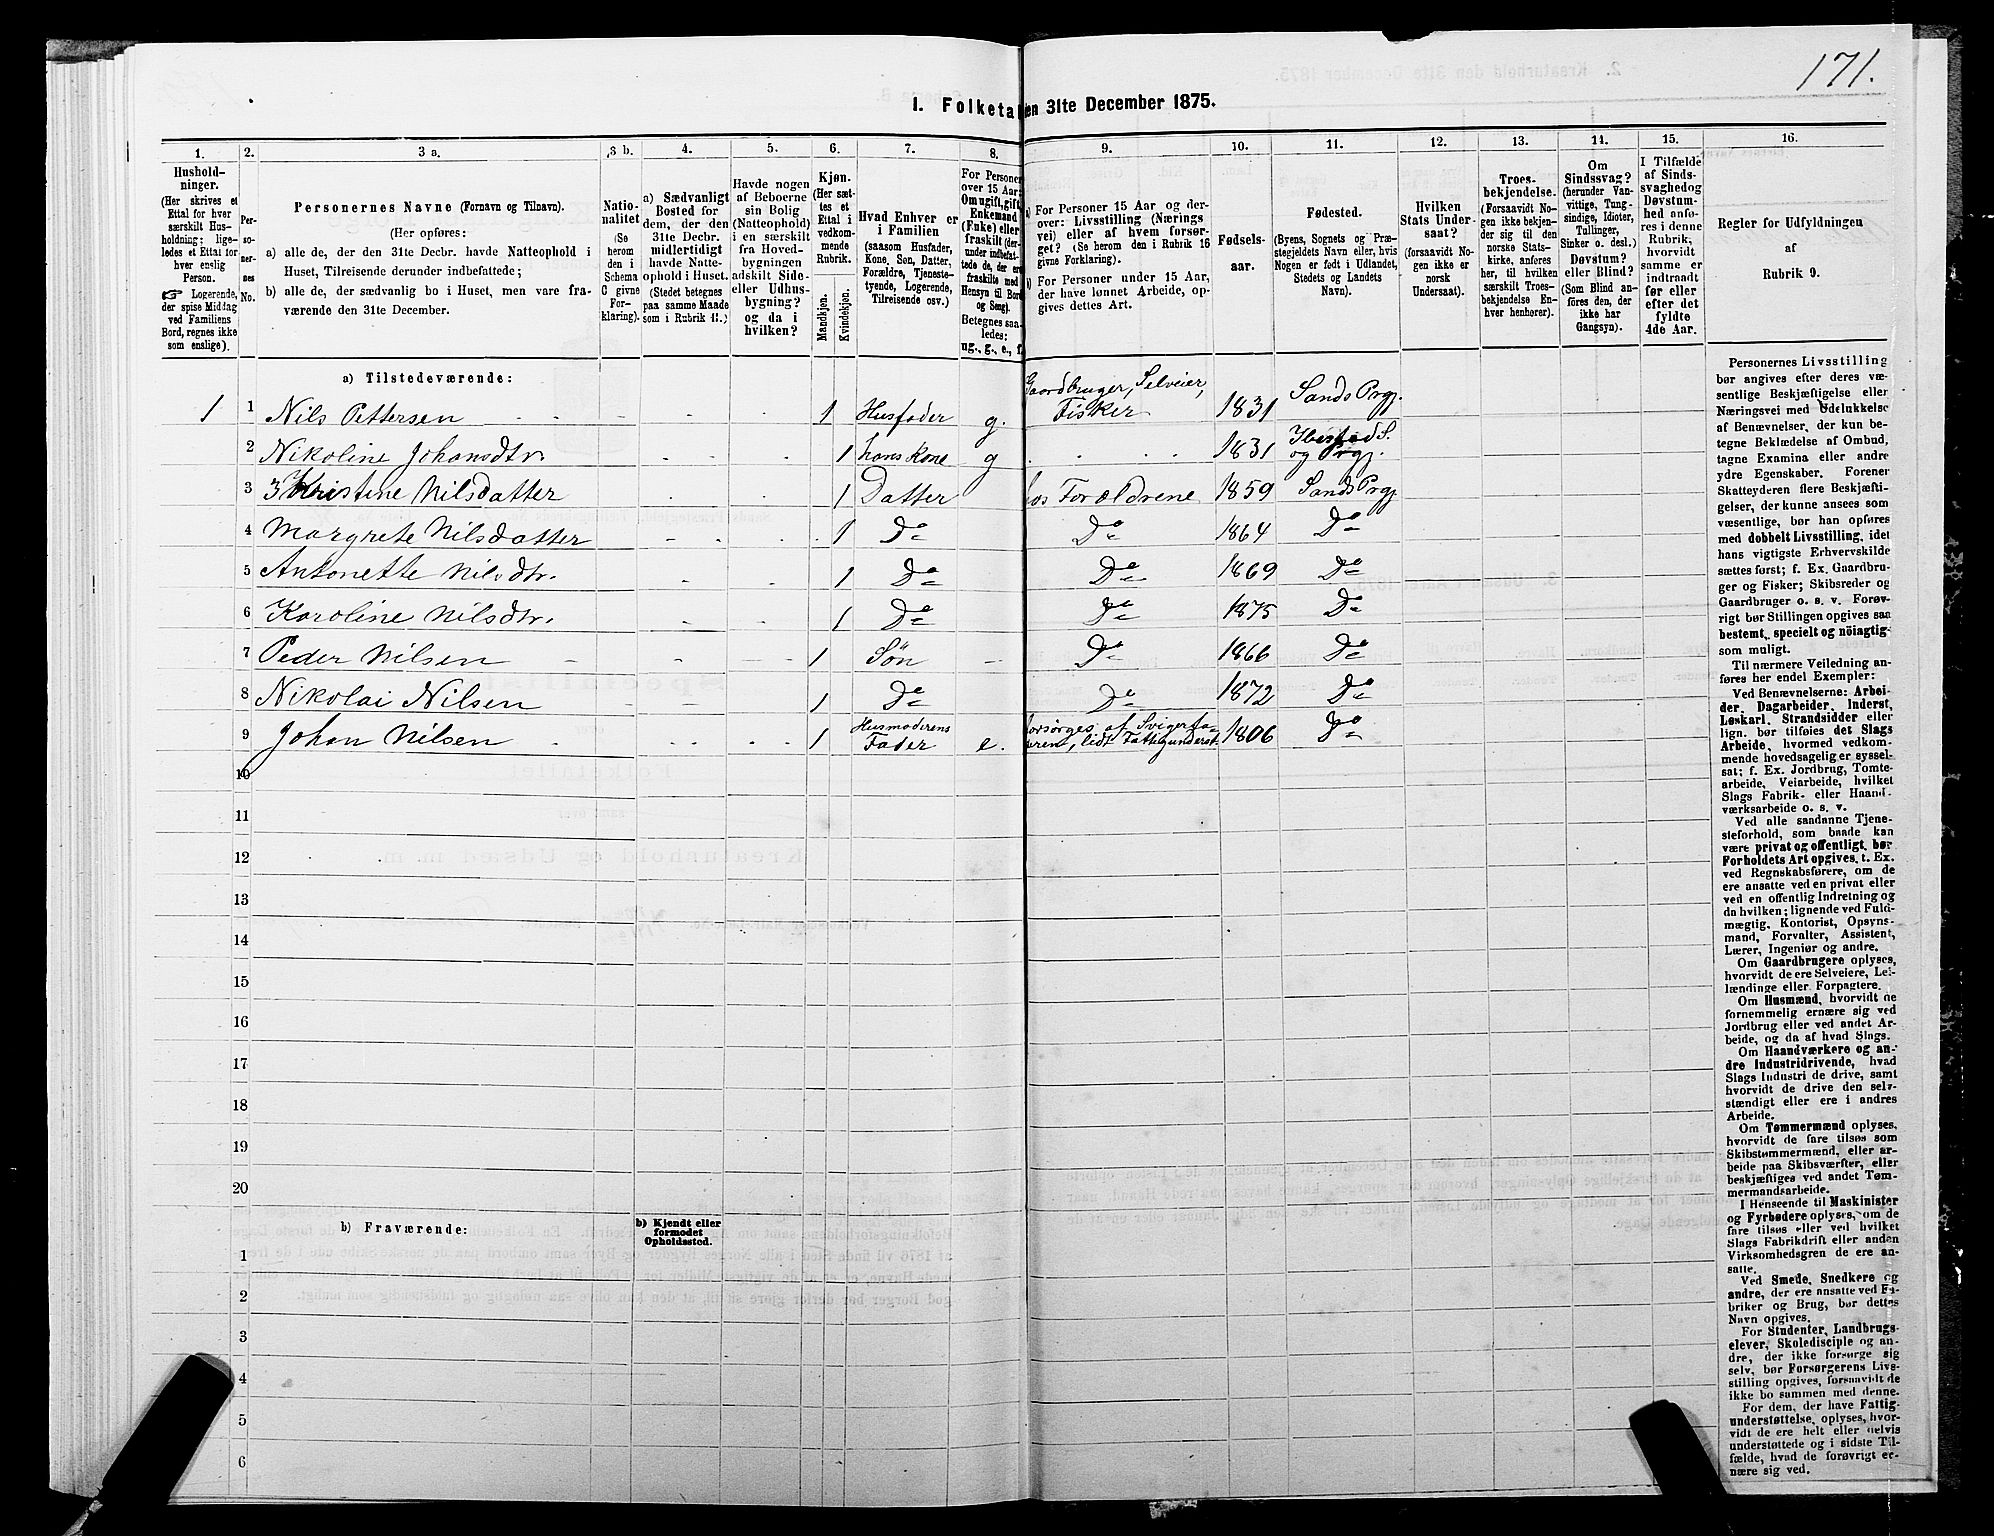 171.
I. Folketa
en 31te December 1875.
1. 2. 3 a. 3 b. 4. 5. 6. 7. 8. 9. 10. 11. 12. 13. 14. 15. 16.
Hushold-
ninger.
(Her skrives et
Ettal for hver
særskilt Hus-
holdning; lige-
ledes et Ettal for
hver enslig
Person.
☞ Logerende,
der spise Middag
ved Familiens
Bord, regnes ikke
som enslige).
Per-
soner-
nes
No.
Personernes Navne (Fornavn og Tilnavn).
(Her opføres:
a) alle de, der den 31te Decbr. havde Natteophold i
Huset, Tilreisende derunder indbefattede;
b) alle de, der sædvanlig bo i Huset, men vare fra-
værende den 31te December.
Natio-
nalitet
(Se
herom
den i
Schema
C givne
For-
klaring).
a) Sædvanligt
Bosted for
dem, der den
31te Decbr.
midlertidigt
havde Natte-
ophold i Huset.
(Stedet betegnes
paa samme Maade
som i Rubrik 11.)
Havde nogen
af Beboerne
sin Bolig
(Natteophold)
i en særskilt
fra Hoved-
bygningen
adskilt Side-
eller Udhus-
bygning?
og da i
hvilken?
Kjøn.
(Her sæt-
tes et
Ettal i
vedkom-
mende
Rubrik.
Mandkjøn.
Kvindekjøn.
Hvad Enhver er
i Familien
(saasom Husfader,
Kone, Søn, Datter,
Forældre, Tjeneste-
tyende, Logerende,
Tilreisende osv.)
For Personer
over 15 Aar:
Om ugift, gift,
Enkemand
(Enke) eller
fraskilt (der-
under indbefat-
tede de, der ere
fraskilte med
Hensyn til Bord
og Seng).
Betegnes saa-
ledes:
ug., g., e., f.
a) For Personer 15 Aar og der-
over: Livsstilling (Nærings
vei) eller af hvem forsør-
get? (Se herom den i Rubrik 16
givne Forklaring).
b) For Personer under 15 Aar,
der have lønnet Arbeide, op-
gives dettes Art.
Fødsels-
aar.
Fødested.
(Byens, Sognets og Præ-
stegjeldets Navn eller, hvis
Nogen er født i Udlandet,
Stedets og Landets
Navn).
Hvilken
Stats Under-
saat?
(forsaavidt No-
gen ikke er
norsk
Undersaat).
Troes-
bekjendelse.
(Forsaavidt No-
gen ikke bekjen-
der sig til den
norske Stats-
kirke, anføres
her, til hvilken
særskilt Troes-
bekjendelse En-
hver henhører).
Om
Sindssvag?
(herunder Van-
vittige, Tung-
sindige, Idioter,
Tullinger,
Sinker o. desl.)
Døvstum?
eller Blind?
(Som Blind an-
føres den, der
ikke har
Gangsyn).
I Tilfælde
af Sinds-
svaghed og
Døvstum-
hed anfø-
res i denne
Rubrik,
hvorvidt
samme er
indtraadt
før eller
efter det
fyldte
4de Aar.
Regler for Udfyldningen
af
Rubrik 9.
a) Tilstedeværende:
1 1 Nils Pettersen 1 Husfader g. Gaardbruger, Selveier, Fisker 1831 Sands Prgj.
2 Nikoline Johansdtr. 1 hans Kone g 1831 Ibestad S. og Prgj.
3 3 Kristine Nilsdatter 1 Datter hos Forældrene 1859 Sands Prgj
4 Margrete Nilsdatter 1 Do Do 1864 Do
5 Antonette Nilsdtr. 1 Do Do 1869 Do
6 Karoline Nilsdtr. 1 Do Do 1875 Do
7 Peder Nilsen 1 Søn Do 1866 Do
8 Nikolai Nilsen 1 Do Do 1872 Do
9 Johan Nilsen 1 Husmoderens Fader e. forsørges af Svigersø- nen, lidt Fattigunderst. 1806 Do
10
11
12
13
14
15
16
17
18
19
20
b) Fraværende:
b) Kjendt eller
formodet
Opholdssted.
1
2
3
4
5
6
Personernes Livsstilling
bør angives efter deres væ-
sentlige Beskjæftigelse eller
Næringsvei med Udelukkelse
af Benævnelser, der kun be-
tegne Beklædelse af Ombud,
tagne Examina eller andre
ydre Egenskaber. Forener
Skatteyderen flere Beskjæfti-
gelser, der kunne ansees som
væsentlige, bør han opføres
med dobbelt Livsstilling, idet
hans vigtigste Erhvervskilde
sættes først; f. Ex. Gaardbru-
ger og Fisker; Skibsreder og
Gaardbruger o. s. v. Forøv-
rigt bør Stillingen opgives saa
bestemt, specielt og nöiagtig
som muligt.
Til nærmere Veiledning an-
føres her endel Exempler:
Ved Benævnelserne: Arbei-
der, Dagarbeider, Inderst,
Løskarl, Strandsidder eller
lign. bør tilføies det Slags
Arbeide, hvormed vedkom-
mende hovedsagelig er syssel-
sat; f. Ex. Jordbrug, Tomte-
arbeide, Veiarbeide, hvilket
Slags Fabrik- eller Haand-
værksarbeide o. s. v.
Ved alle saadanne Tjene-
steforhold, som baade kan
være privat og offentligt, bør
Forholdets Art opgives, t. Ex.
ved Regnskabsførere, om de
ere ansatte ved en privat eller
ved en offentlig Indretning og
da hvilken; lignende ved Fuld-
mægtig, Kontorist, Opsyns-
mand, Forvalter, Assistent,
Lærer, Ingeniør og andre.
Om Gaardbrugere oplyses,
hvorvidt de ere Selveiere, Lei-
lændinge eller Forpagtere.
Om Husmænd, hvorvidt de
fornemmelig ernære sig ved
Jordbrug eller ved andet Ar-
beide, og da af hvad Slags.
Om Haandværkere og an-
dre Industridrivende, hvad
Slags Industri de drive, samt
hvorvidt de drive den selv-
stændigt eller ere i andres
Arbeide.
Om Tømmermænd oplyses,
hvorvidt de fare tilsøs som
Skibstømmermænd, eller ar-
beide paa Skibsværfter, eller
beskjæftiges ved andet Tøm-
mermandsarbeide.
I Henseende til Maskinister
og Fyrbødere oplyses, om de
fare tilsøs eller ved hvilket
Slags Fabrikdrift eller anden
Virksomhedsgren de ere an-
satte.
Ved Smede, Snedkere og
andre, der ere ansatte ved Fa-
briker og Brug, bør dettes
Navn opgives.
For Studenter, Landbrugs-
elever, Skoledisciple og an-
dre, der ikke forsørge sig
selv, bør Forsørgerens Livs-
stilling opgives, forsaavidt de
ikke bo sammen med denne.
For dem, der have Fattig-
understøttelse, oplyses, hvor-
vidt de ere helt eller delvis
understøttede og i sidste Til-
fælde, hvad de forøvrigt er-
nære sig ved.